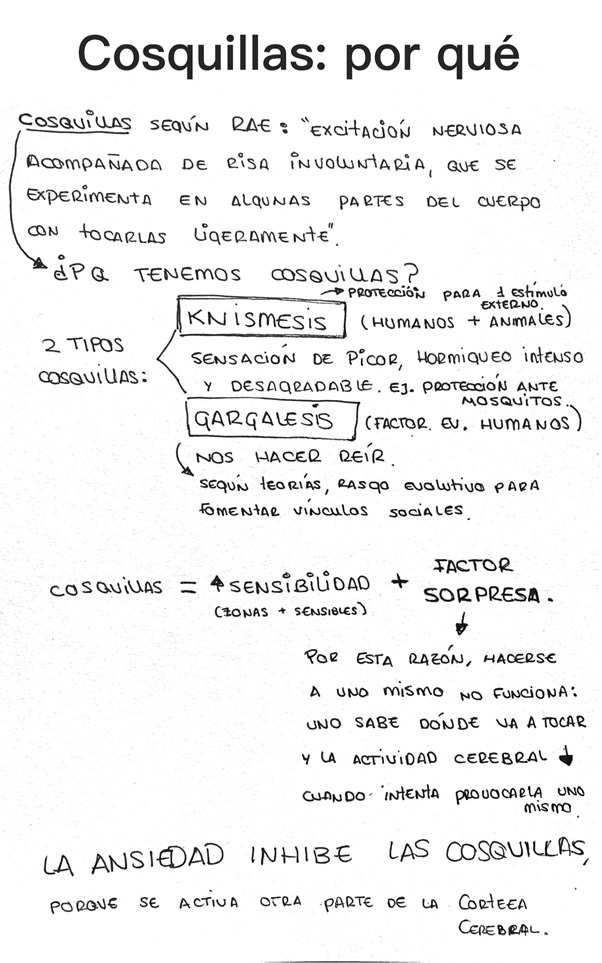 Cosquillas: por qué
COSQUILLAS SEGÚN RAE: "EXCITACIÓN NERVIOSA
ACOMPAÑADA DE RISA INVOLUNTARIA, QUE SE
EXPERIMENTA EN ALGUNAS PARTES DEL CUERPO
CON TOCARLAS LIGERAMENTE".
¿PQ TENEMOS COSQUILLAS?
PROTECCIÓN PARA 1 ESTÍMULO
EXTERNO.
KNISMESIS (HUMANOS + ANIMALES)
2 TIPOS
COSQUILLAS:
SENSACIÓN DE PICOR, HORMIGUEO INTENSO
Y DESAGRADABLE. EJ. PROTECCIÓN ANTE
MOSQUITOS.
GARGALESIS (FACTOR. EV. HUMANOS)
NOS HACER REÍR.
SEGÚN TEORÍAS, RASGO EVOLUTIVO PARA
FOMENTAR VÍNCULOS SOCIALES.
COSQUILLAS = ↑ SENSIBILIDAD + FACTOR
SORPRESA.
(ZONAS + SENSIBLES)
POR ESTA RAZÓN, HACERSE
A UNO MISMO NO FUNCIONA:
UNO SABE DÓNDE VA A TOCAR
Y LA ACTIVIDAD CEREBRAL ↓
CUANDO INTENTA PROVOCARLA UNO
MISMO
LA ANSIEDAD INHIBE LAS COSQUILLAS,
PORQUE SE ACTIVA OTRA PARTE DE LA CORTEZA
CEREBRAL.